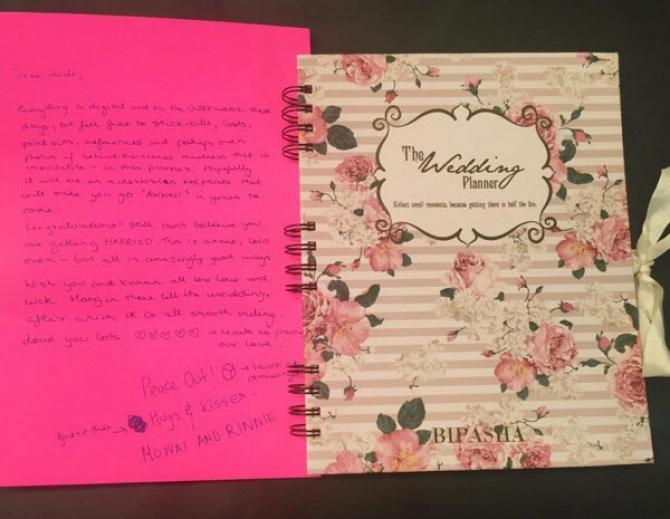 Dear didi,
Everything is digital and on the internet these
days, but feel free to stick bills, lists,
print outs, references and perhaps even
photos of behind-the-scenes madness that is
inevitable - in this planner. Hopefully
it will be an keepsake that
will make you go "AWWW" in years to
come.
Congratulations! Still can't believe you
are getting MARRIED. This is insane, loco
even - but all in amazingly good ways
Wish you and Karan all the love and
luck. Hang in there till the wedding,
after which it is all smooth sailing.
Love you lots! ♡♡♡♡♡ → hearts to prove
our love.
Peace Out! → look at
drawing
Ignore this → Hugs & Kisses
MOWAI AND RINNIE
The
Wedding
Planner
Collect small moments, because getting there is half the fun.
BIPASHA